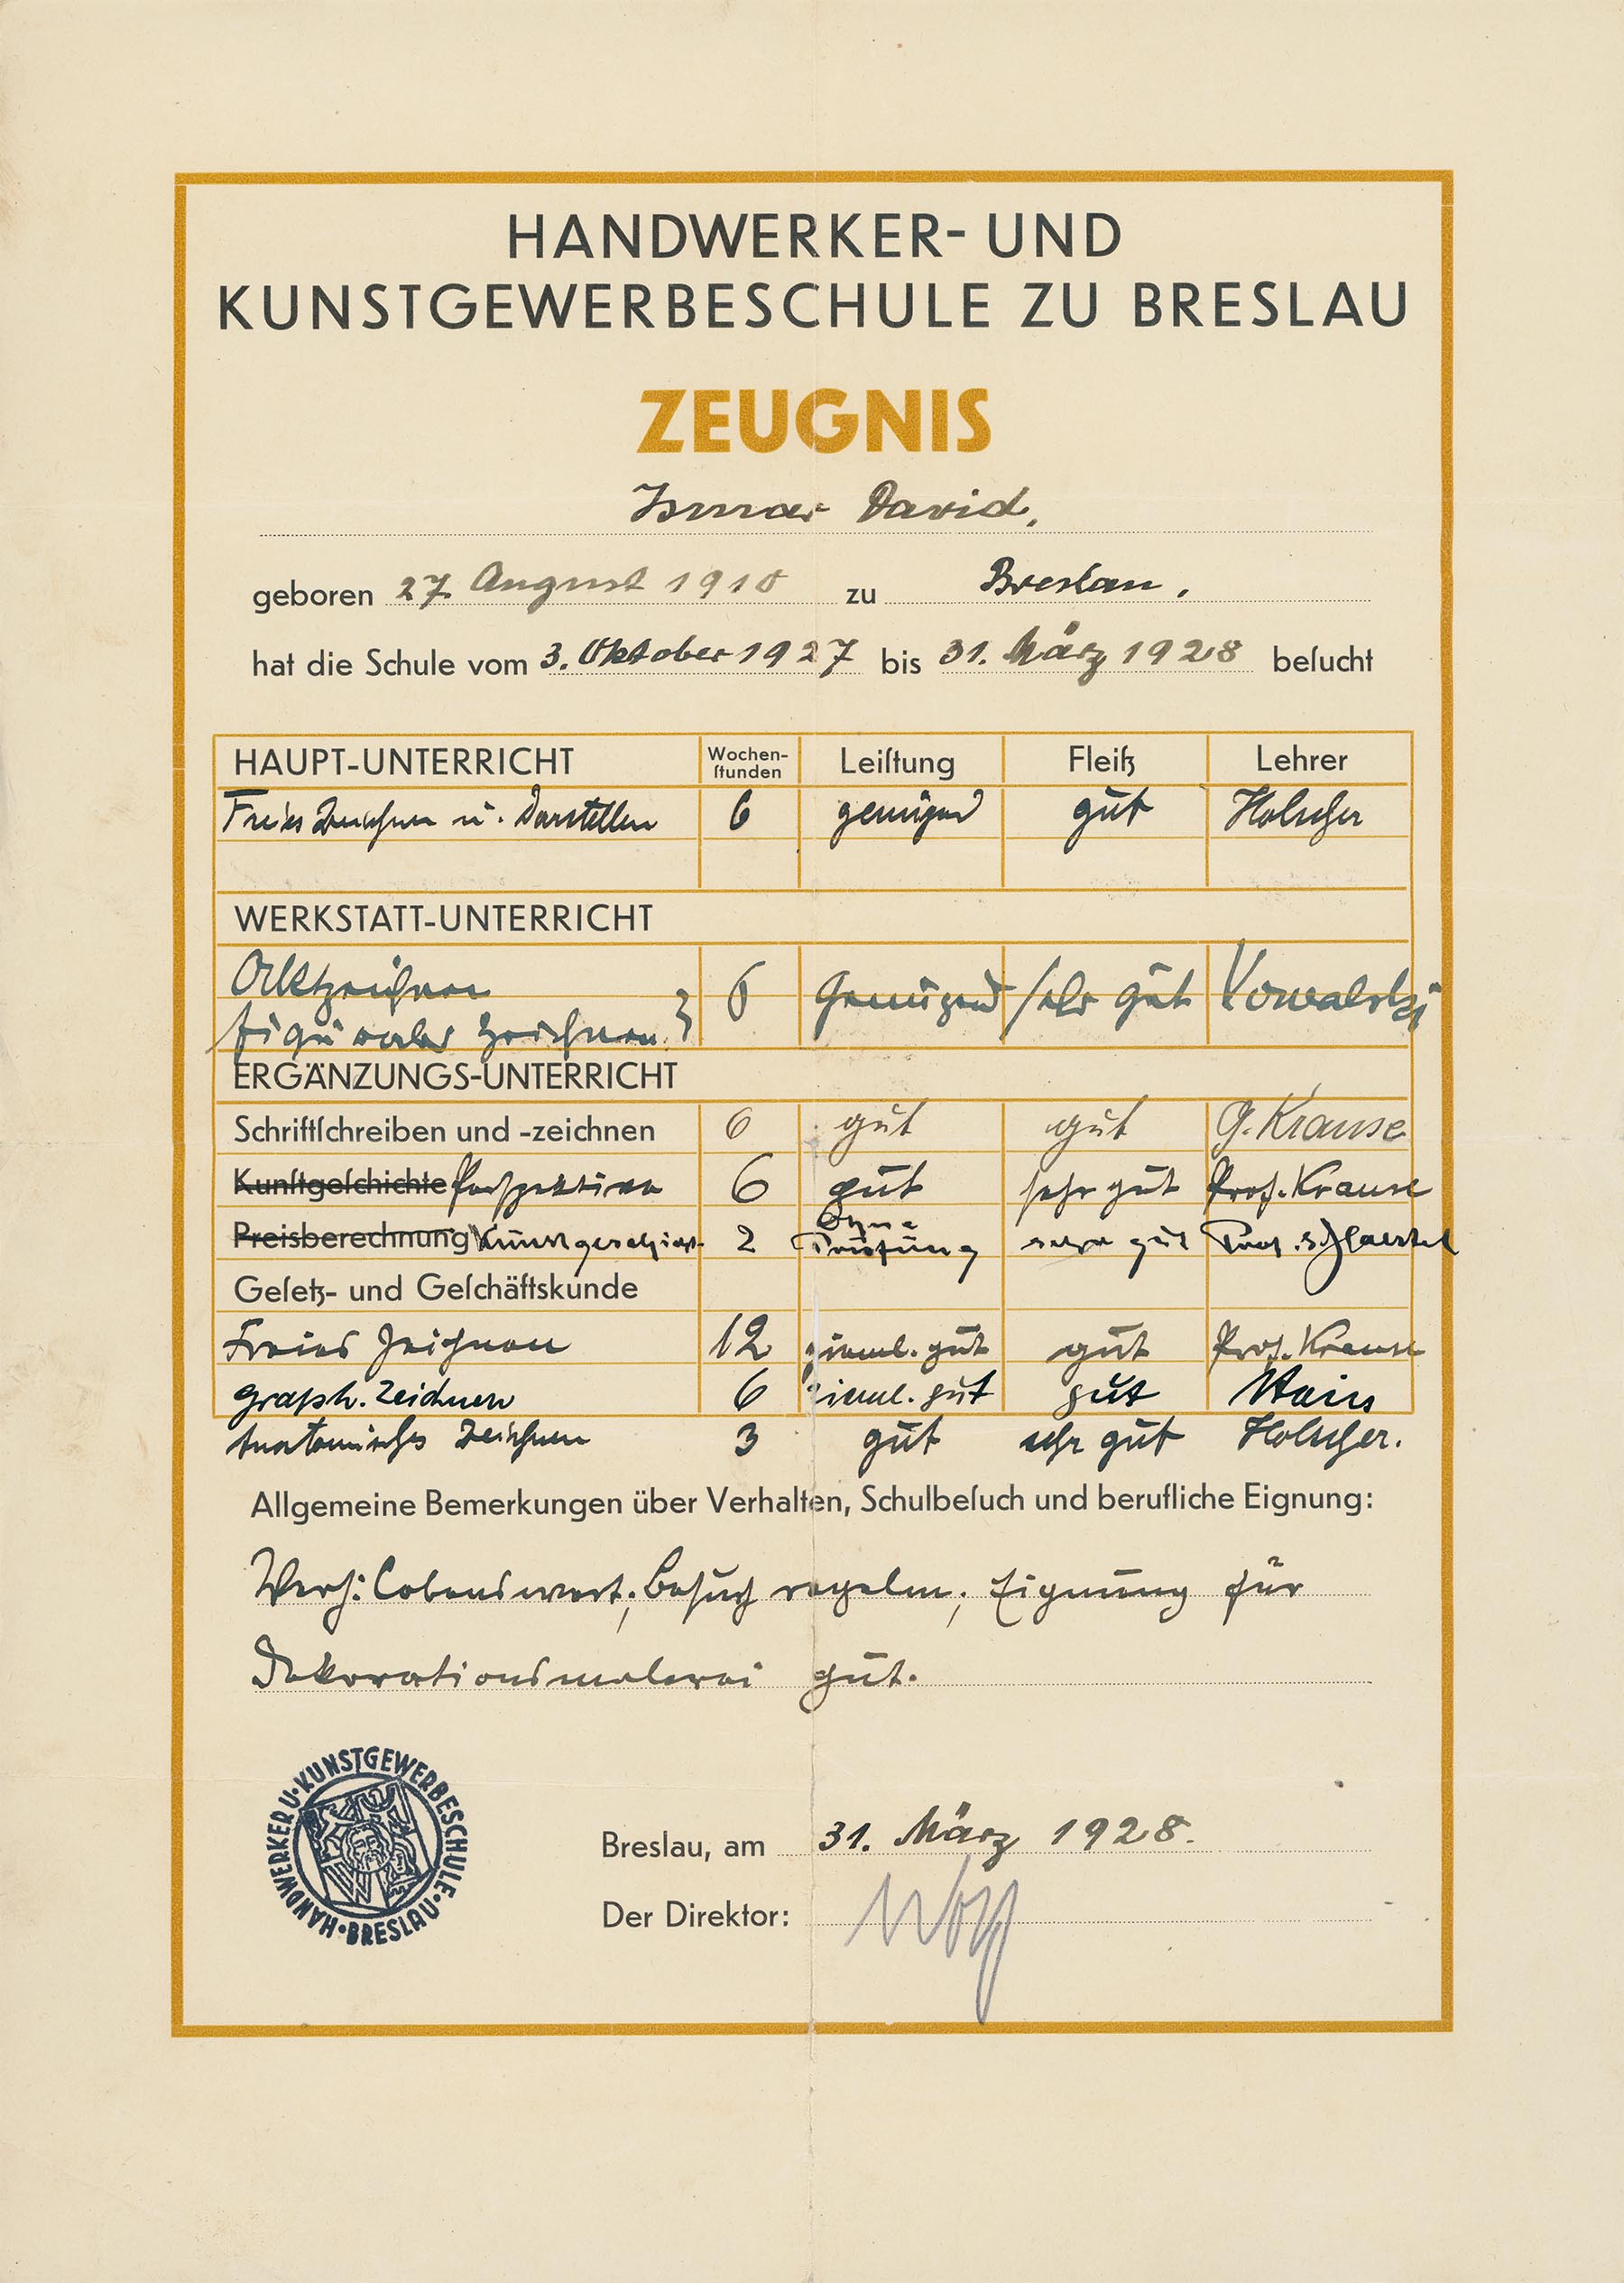 HANDWERKER- UND
KUNSTGEWERBESCHULE ZU BRESLAU
ZEUGNIS
Ismar David.
geboren 27. August 1910 zu Breslau.
hat die Schule vom 3. Oktober 1927 bis 31. März 1928 beſucht
HAUPT-UNTERRICHT Wochen-ſtunden Leiſtung Fleiß Lehrer
Freies Zeichnen u. Darstellen 6 genügend gut Holscher
WERKSTATT-UNTERRICHT
Aktzeichnen
figurales Zeichnen. } 6 Genügend sehr gut Kowalski
ERGÄNZUNGS-UNTERRICHT
Schriftſchreiben und -zeichnen 6 gut gut G. Krause
Kunſtgeſchichte Perspektive 6 gut sehr gut Prof. Krause
Preisberechnung Kunstgeschicht. 2 Ohne Prüfung sehr gut Prof.
Geſetz- und Geſchäftskunde
Freies Zeichnen 12 zieml. gut gut Prof. Krause
graph. Zeichnen 6 zieml. gut gut
Anatomisches Zeichnen 3 gut sehr gut Holscher.
Allgemeine Bemerkungen über Verhalten, Schulbeſuch und berufliche Eignung:
Verh: Lobenswert; Besuch regelm; Eignung für
Dekorationsmalerei gut.
HANDWERKER U. KUNSTGEWERBESCHULE · BRESLAU ·
Breslau, am 31. März 1928.
Der Direktor: